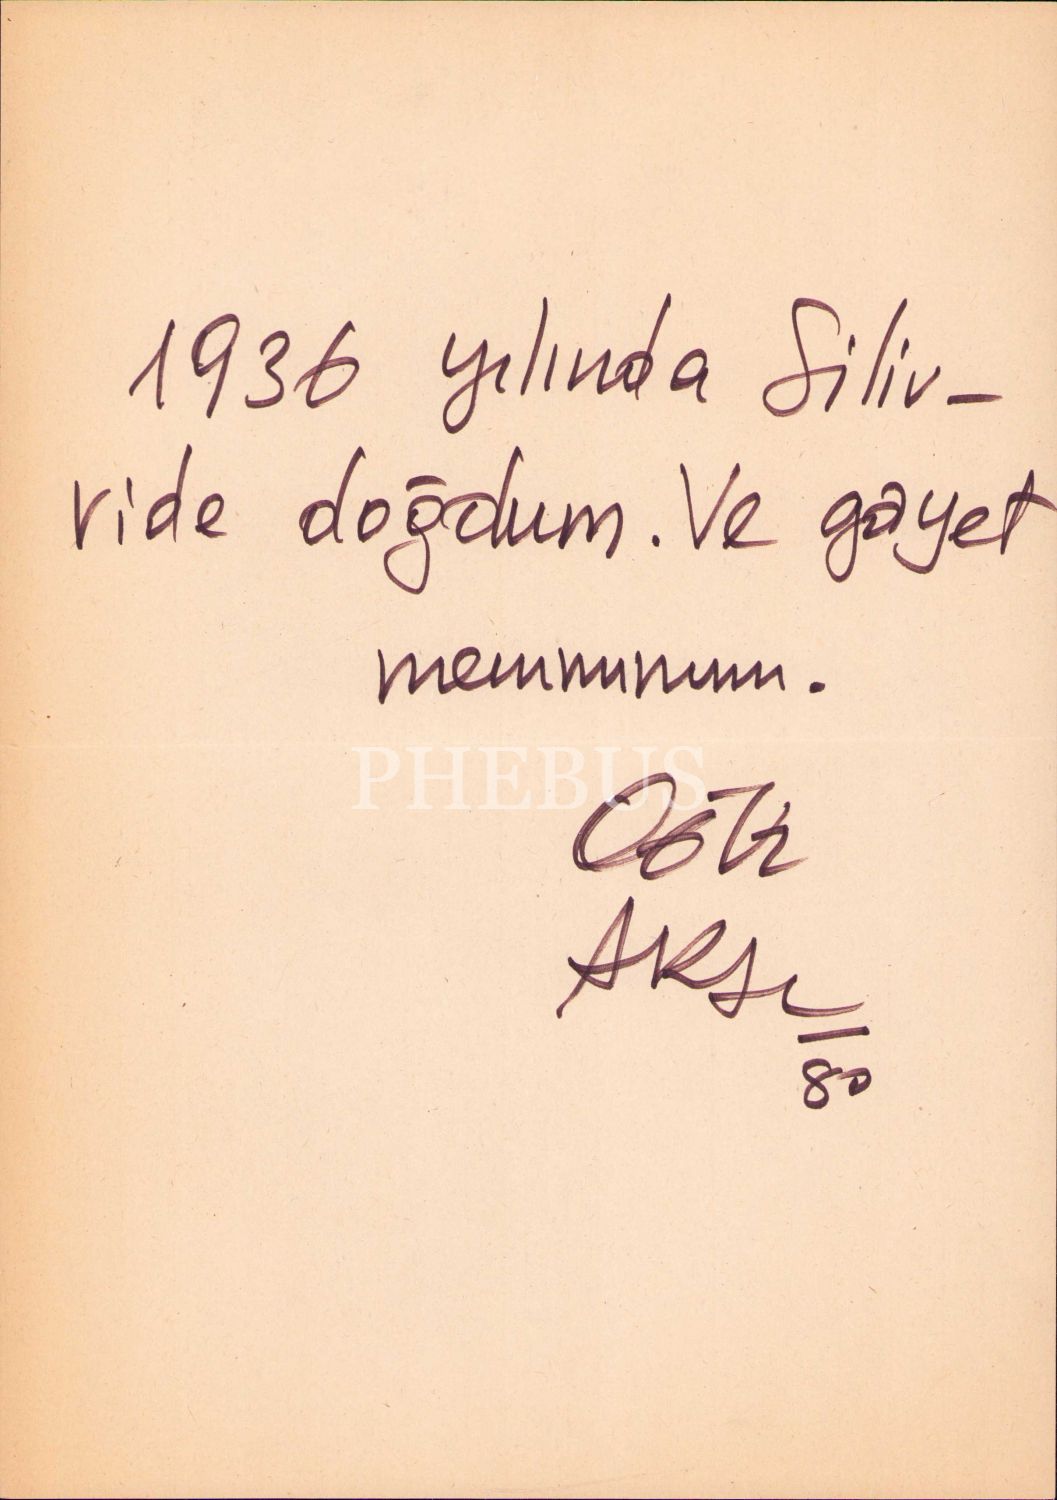 1936 yılında Siliv-
ride doğdum. Ve gayet
memnunum.
PHEBUS
80